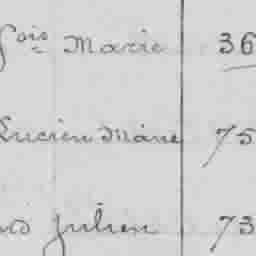 çois Marie 36
Lucien Marie 75
Julien 73